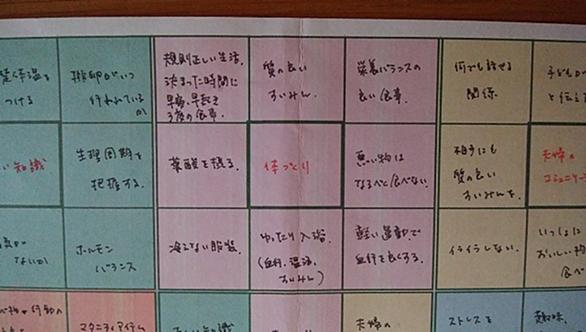 つける
排卵がいつ
行われている
か
規則正しい生活.
決まった時間に
早寝.早起き
3度の食事.
質の良い
すいみん.
栄養バランスの
良い食事.
何でも話せる
関係.
子どもが
と伝え
知識
生理周期を
把握する.
葉酸を摂る.
体づくり
悪い物は
なるべく食べない.
相手にも
質の良い
すいみんを.
夫婦の
コミュニケー
ないか
ホルモン
バランス
冷えない服装.
ゆったり入浴
(血行.温活.
すいみん)
軽い運動で
血行を良くする.
イライラしない.
いっしょに
おいしい物
食べ
マタニティアイテム
夫婦の
ストレスを